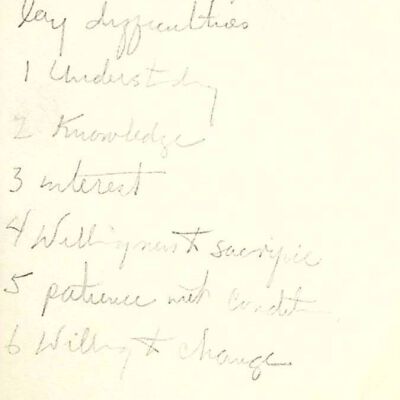 lay difficulties
1 Understdg
2 Knowledge
3 interest
4 Willingness to sacrifice
5 patience with condit
6 Willing to change